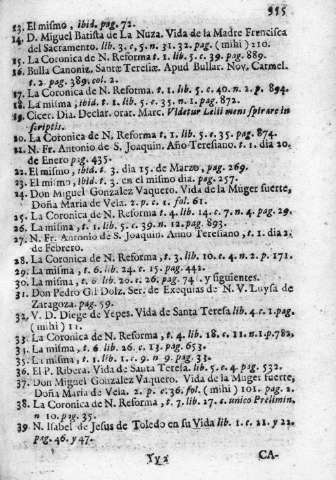 535
13. El mismo, ibid. pag. 72.
14. D. Miguel Batista de La Nuza. Vida de la Madre Francisca
del Sacramento. lib. 3. c. 5. n. 31. 32. pag. (mihi) 110.
15. La Coronica de N. Reforma t. 1. lib. 5. c. 39. pag. 889.
16. Bulla Canoniz. Sanctæ Teresiæ. Apud Bullar. Nov. Carmel.
t. 2. pag. 389. col. 2.
17. La Coronica de N. Reforma. t. 1. lib. 5. c. 40. n. 2. p. 894.
18. La misma; ibid. t. 1. lib. 5. c. 35. n. 1. pag. 872.
19. Cicer. Dia. Declar. orat. Marc. Videtur Lælii mens spirare in
scriptis.
20. La Coronica de N. Reforma t. 1. lib. 5. c. 35. pag. 874.
21. N. Fr. Antonio de S. Joaquin. Año Teresiano. t. 1. dia 20.
de Enero pag. 435.
22. El mismo, ibid. t. 3. dia 15. de Marzo, pag. 269.
23. El mismo, ibid. t. 3. en el mismo dia. pag. 257.
24. Don Miguel Gonzalez Vaquero. Vida de la Muger fuerte,
Doña Maria de Vela. 2. p. c. 1. fol. 61.
25. La Coronica de N. Reforma t. 4. lib. 14. c. 7. n. 4. pag. 29.
26. La misma, t. 1. lib. 5. c. 39. n. 12. pag. 893.
27. N. Fr. Antonio de S. Joaquin. Anno Teresiano, t. 1. dia 2.
de Febrero.
28. La Coronica de N. Reforma, t. 3. lib. 10. c. 4. n. 2. p. 171.
29. La misma, t. 6. lib. 24. c. 15. pag. 442.
30. La misma, t. 6. lib. 20. c. 26. pag. 74. y siguientes.
31. Don Pedro Gil Dolz. Ser. de Exequias de N. V. Luysa de
Zaragoza. pag. 59.
32. V. D. Diego de Yepes. Vida de Santa Teresa lib. 4. c. 1. pag.
(mihi) 11.
33. La Coronica de N. Reforma, t. 4. lib. 18. c. 11. n. 1. p. 782.
34. La misma, t. 6. lib. 26. c. 13. pag. 653.
35. La misma, t. 1. lib. 1. c. 9. n. 9. pag. 33.
36. El P. Ribera. Vida de Santa Teresa. lib. 5. c. 4. pag. 532.
37. Don Miguel Gonzalez Vaquero. Vida de la Muger fuerte,
Doña Maria de Vela. 2. p. c. 36. fol. (mihi) 101. pag. 2.
38. La Coronica de N. Reforma, t. 7. lib. 27. c. unico Prelimin.
n. 10. pag. 35.
39. N. Isabel de Jesus de Toledo en su Vida lib. 1. c. 21. y 22.
pag. 46. y 47.
Yyy 2 CA-